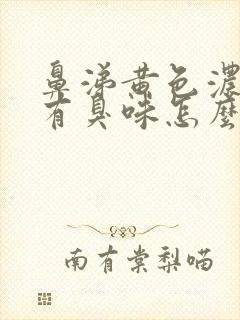 鼻涕黄色濃
有臭味怎麼
南有棠梨喵